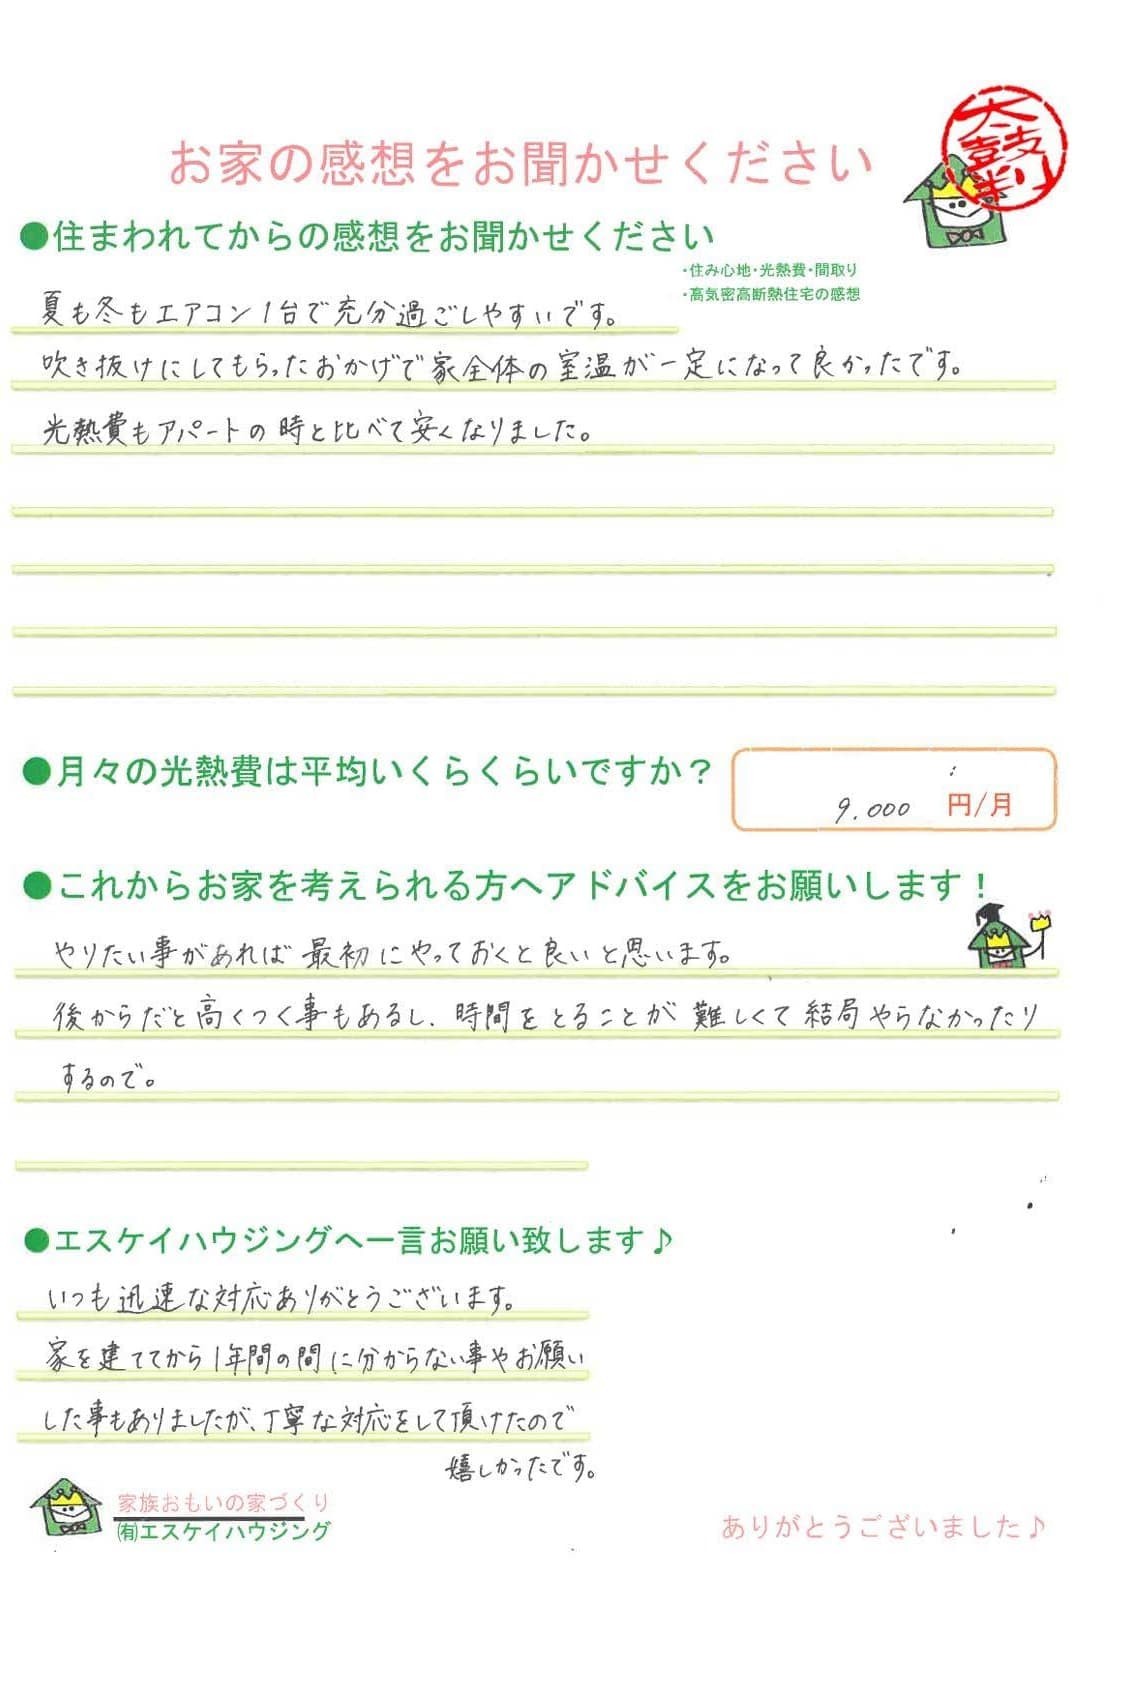 太鼓判
お家の感想をお聞かせください
●住まわれてからの感想をお聞かせください
・住み心地・光熱費・間取り
・高気密高断熱住宅の感想
夏も冬もエアコン1台で充分過ごしやすいです。
吹き抜けにしてもらったおかげで家全体の室温が一定になって良かったです。
光熱費もアパートの時と比べて安くなりました。
●月々の光熱費は平均いくらくらいですか？
9.000 円/月
●これからお家を考えられる方へアドバイスをお願いします！
やりたい事があれば最初にやっておくと良いと思います。
後からだと高くつく事もあるし、時間をとることが難しくて結局やらなかったり
するので。
●エスケイハウジングへ一言お願い致します♪
いつも迅速な対応ありがとうございます。
家を建ててから1年間の間に分からない事やお願い
した事もありましたが、丁寧な対応をして頂けたので
嬉しかったです。
家族おもいの家づくり
㈲エスケイハウジング
ありがとうございました♪